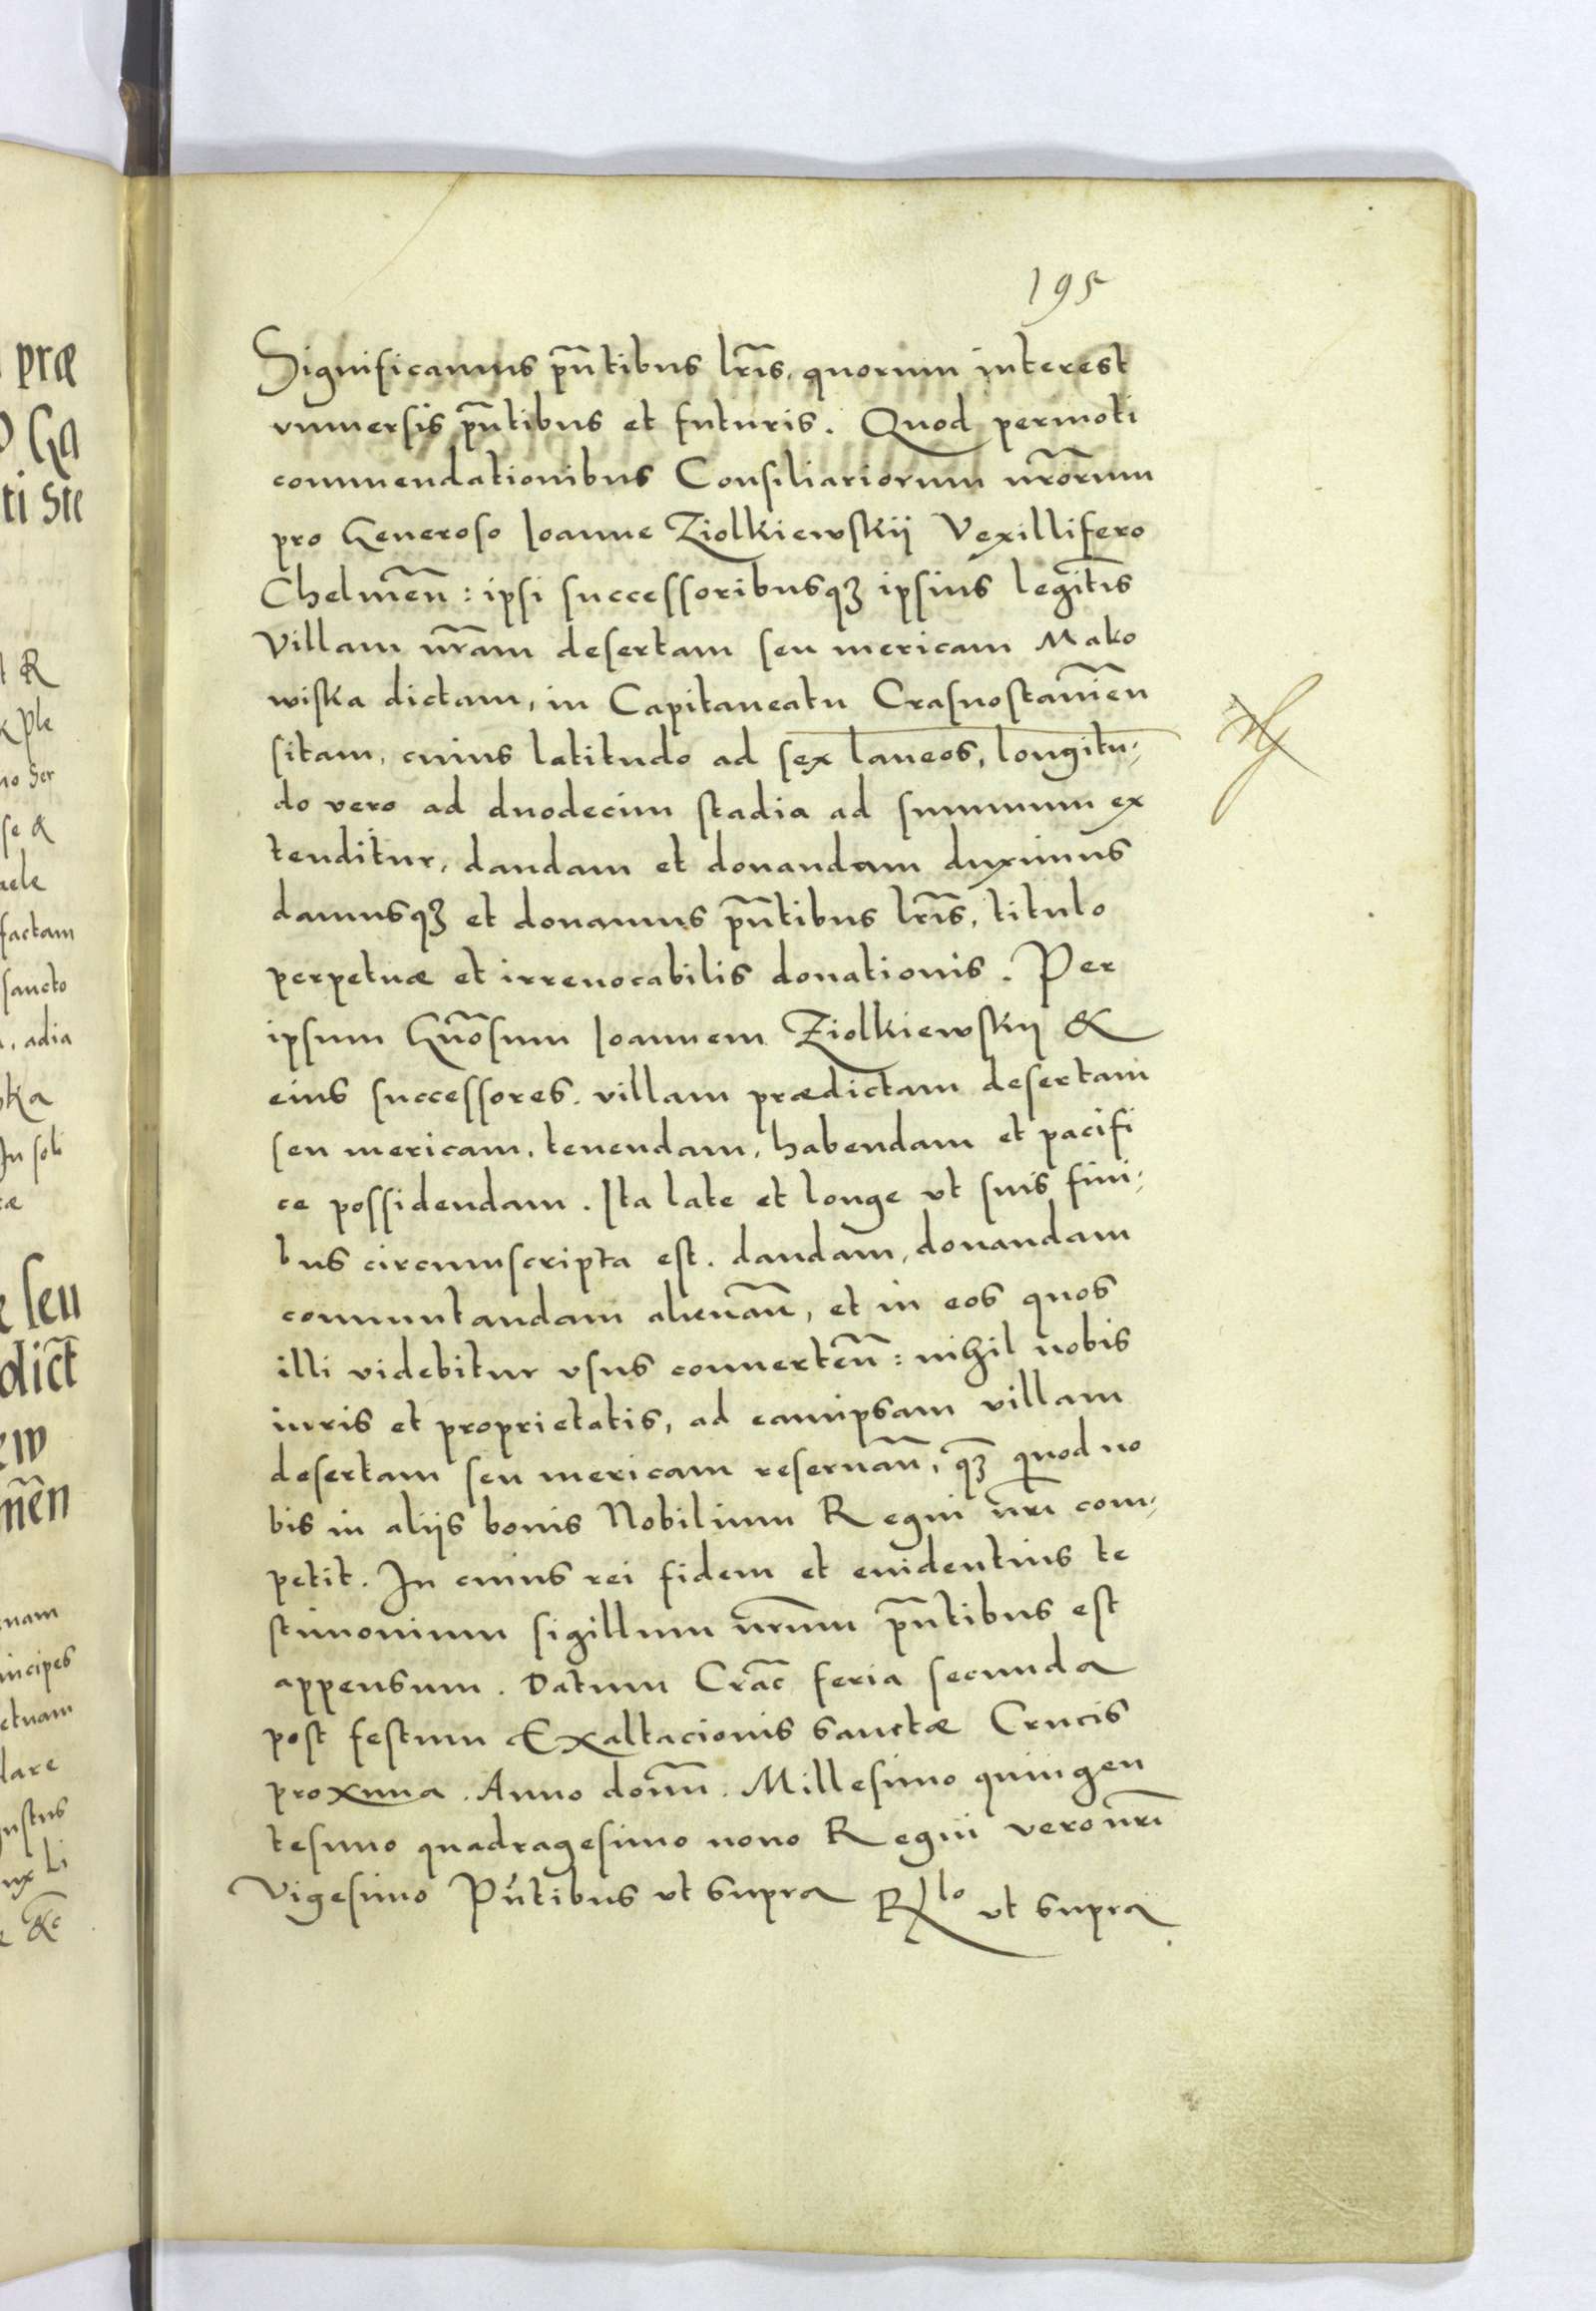 195
Significamus pn̄tibus lr̄is, quorum interest
vniuersis pn̄tibus et futuris. Quod permoti
commendationibus Consiliariorum nr̄orum
pro Generoso Ioanne Ziolkiewskij Vexillifero
Chelmen̄: ipsi successoribusqꝫ ipsius legitīs
Villam nr̄am desertam seu mericam Mako
wiska dictam, in Capitaneatu Crasnostauien̄
sitam, cuius latitudo ad sex laneos, longitu-
do vero ad duodecim stadia ad summum ex
tenditur, dandam et donandam duximus
damusqꝫ et donamus pn̄tibus lr̄is, titulo
perpetuæ et irreuocabilis donationis. Per
ipsum Gn̄osum Ioannem Ziolkiewskij &
eius successores. villam prædictam desertam
seu mericam, tenendam, habendam et pacifi
ce possidendam. Ita late et longe vt suis fini-
bus circumscripta est. dandam, donandam
commutandam alienan̄, et in eos quos
illi videbitur vsus conuerten̄: nihil nobis
iuris et proprietatis, ad eamipsam villam
desertam seu mericam reseruan̄, qꝫ̄ quod no
bis in aliis bonis Nobilium Regni nr̄i com-
petit. In cuius rei fidem et euidentius te
stimonium sigillum nr̄um pn̄tibus est
appensum. Datum Crac̄ feria secunda
post festum Exaltacionis sanctæ Crucis
proxima. Anno domī. Millesimo quingen
tesimo quadragesimo nono Regni vero nr̄i
Vigesimo Pn̄tibus vt supra Rl̄o vt supra
præ
Ga
ti Ste
R
ple
no Ser
se &
aele
factam
sancto
, adia
ska
In soli
cæ
seu
dict̄
ew
men̄
nam
incipes
etuam
dare
ustus
ux Li
&c